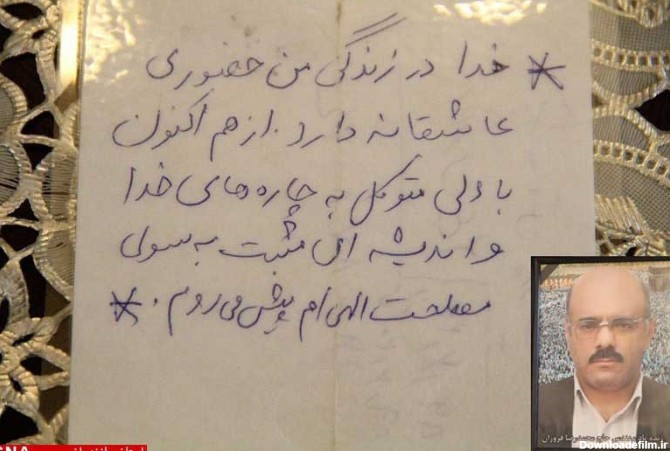 * خدا در زندگی من حضوری
عاشقانه دارد. از هم اکنون
با دلی متوکل به چاره های خدا
و اندیشه ای مثبت به سوی
مصلحت الهی ام پیش می روم. *
فروزان
Downloadefilm.ir